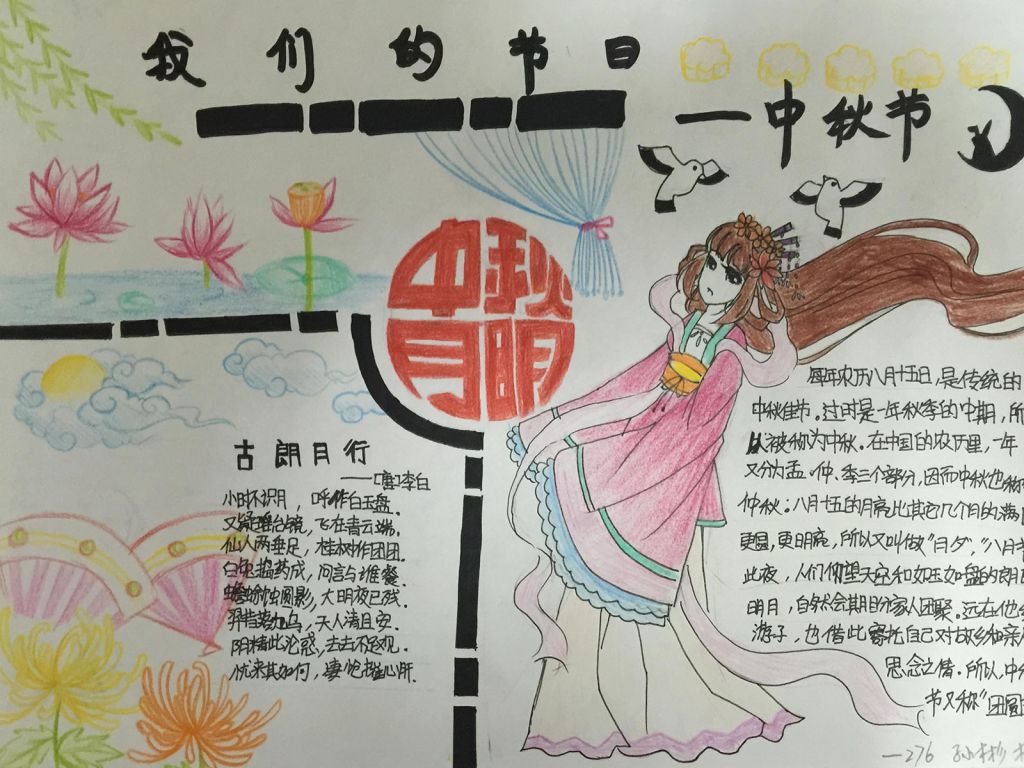 我们的节日
—中秋节
中秋
月明
古朗月行
——[唐]李白
小时不识月，呼作白玉盘.
又疑瑶台镜，飞在青云端.
仙人两垂足，桂树作团团.
白兔捣药成，问言与谁餐.
蟾蜍蚀圆影，大明夜已残.
羿昔落九乌，天人清且安.
阴精此沦惑，去去不足观.
忧来其如何，凄怆摧心肝.
每年农历八月十五日，是传统的
中秋佳节.这时是一年秋季的中期，所
以被称为中秋.在中国的农历里，一年
又分为孟.仲.季三个部分，因而中秋也称
仲秋.八月十五的月亮比其它几个月的满
更圆，更明亮，所以又叫做"月夕"，"八月
此夜，人们仰望天空和如玉如盘的朗
明月，自然会期盼家人团聚.远在他
游子，也借此寄托自己对故乡和亲
思念之情.所以，中
节又称"团圆
—276 孙彬